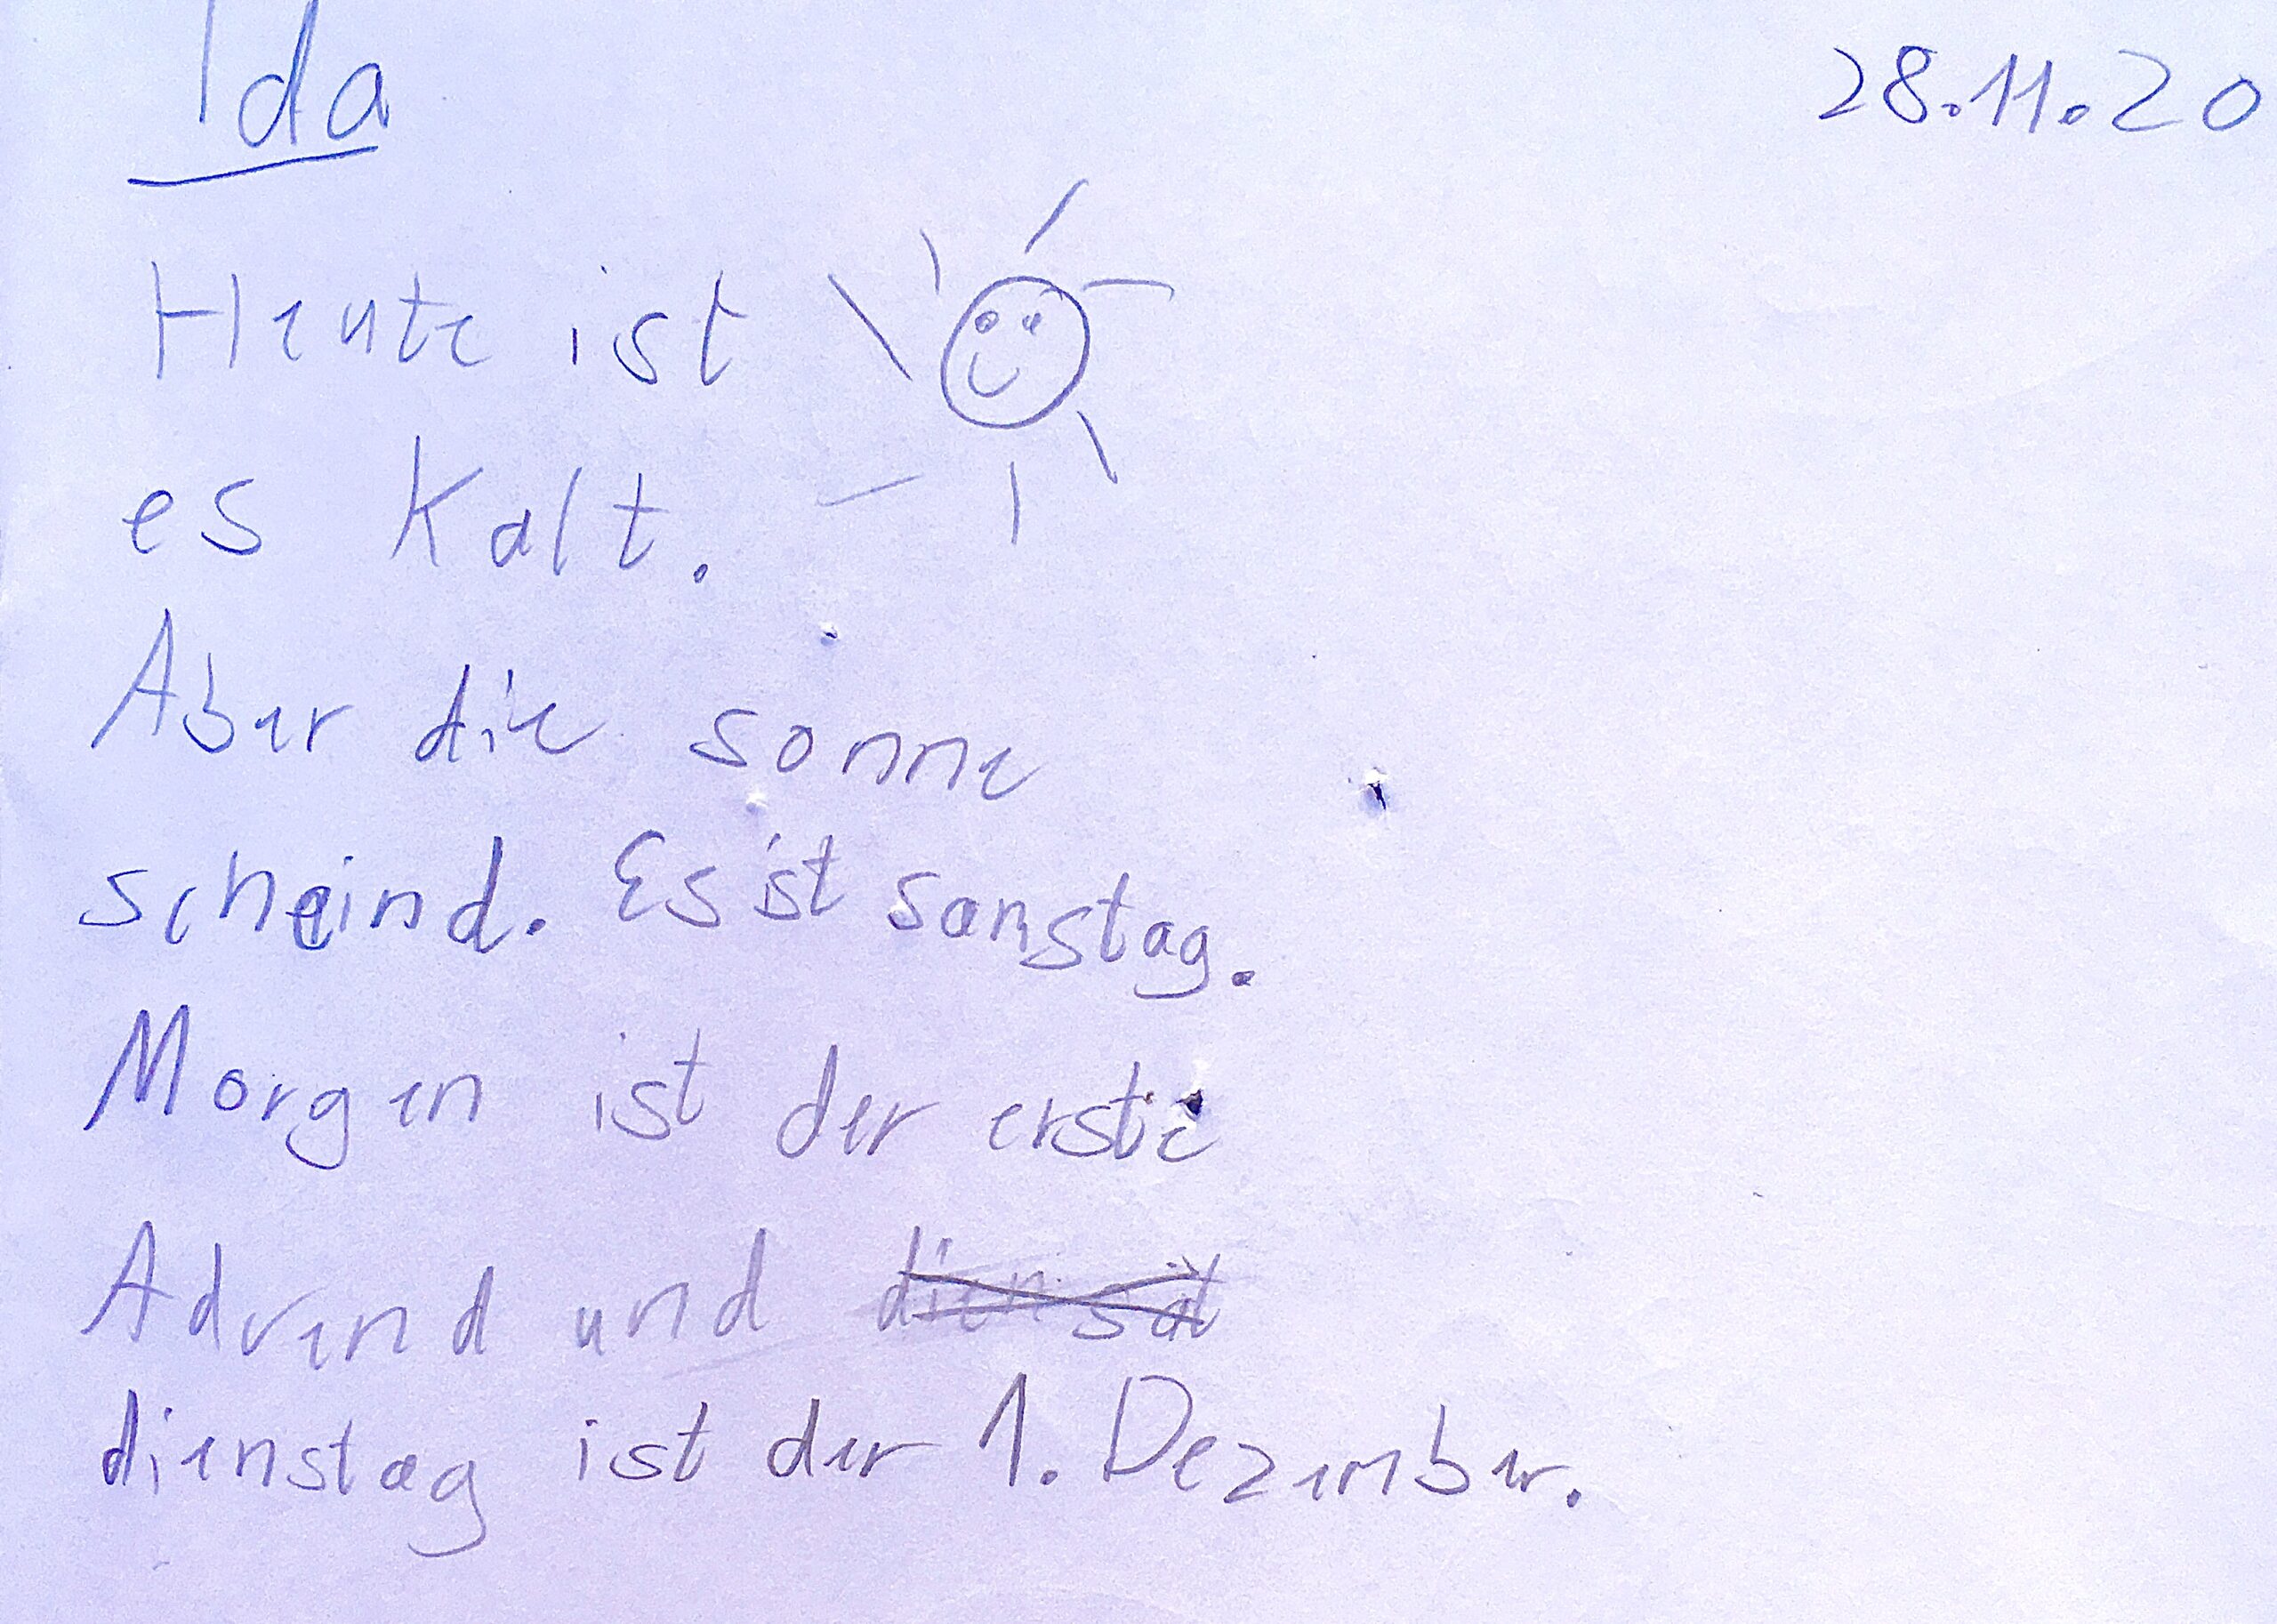 Ida 28.11.20
Heute ist
es Kalt.
Aber die sonne
scheind. Es ist samstag.
Morgen ist der erste
Advend und
dienstag ist der 1. Dezember.